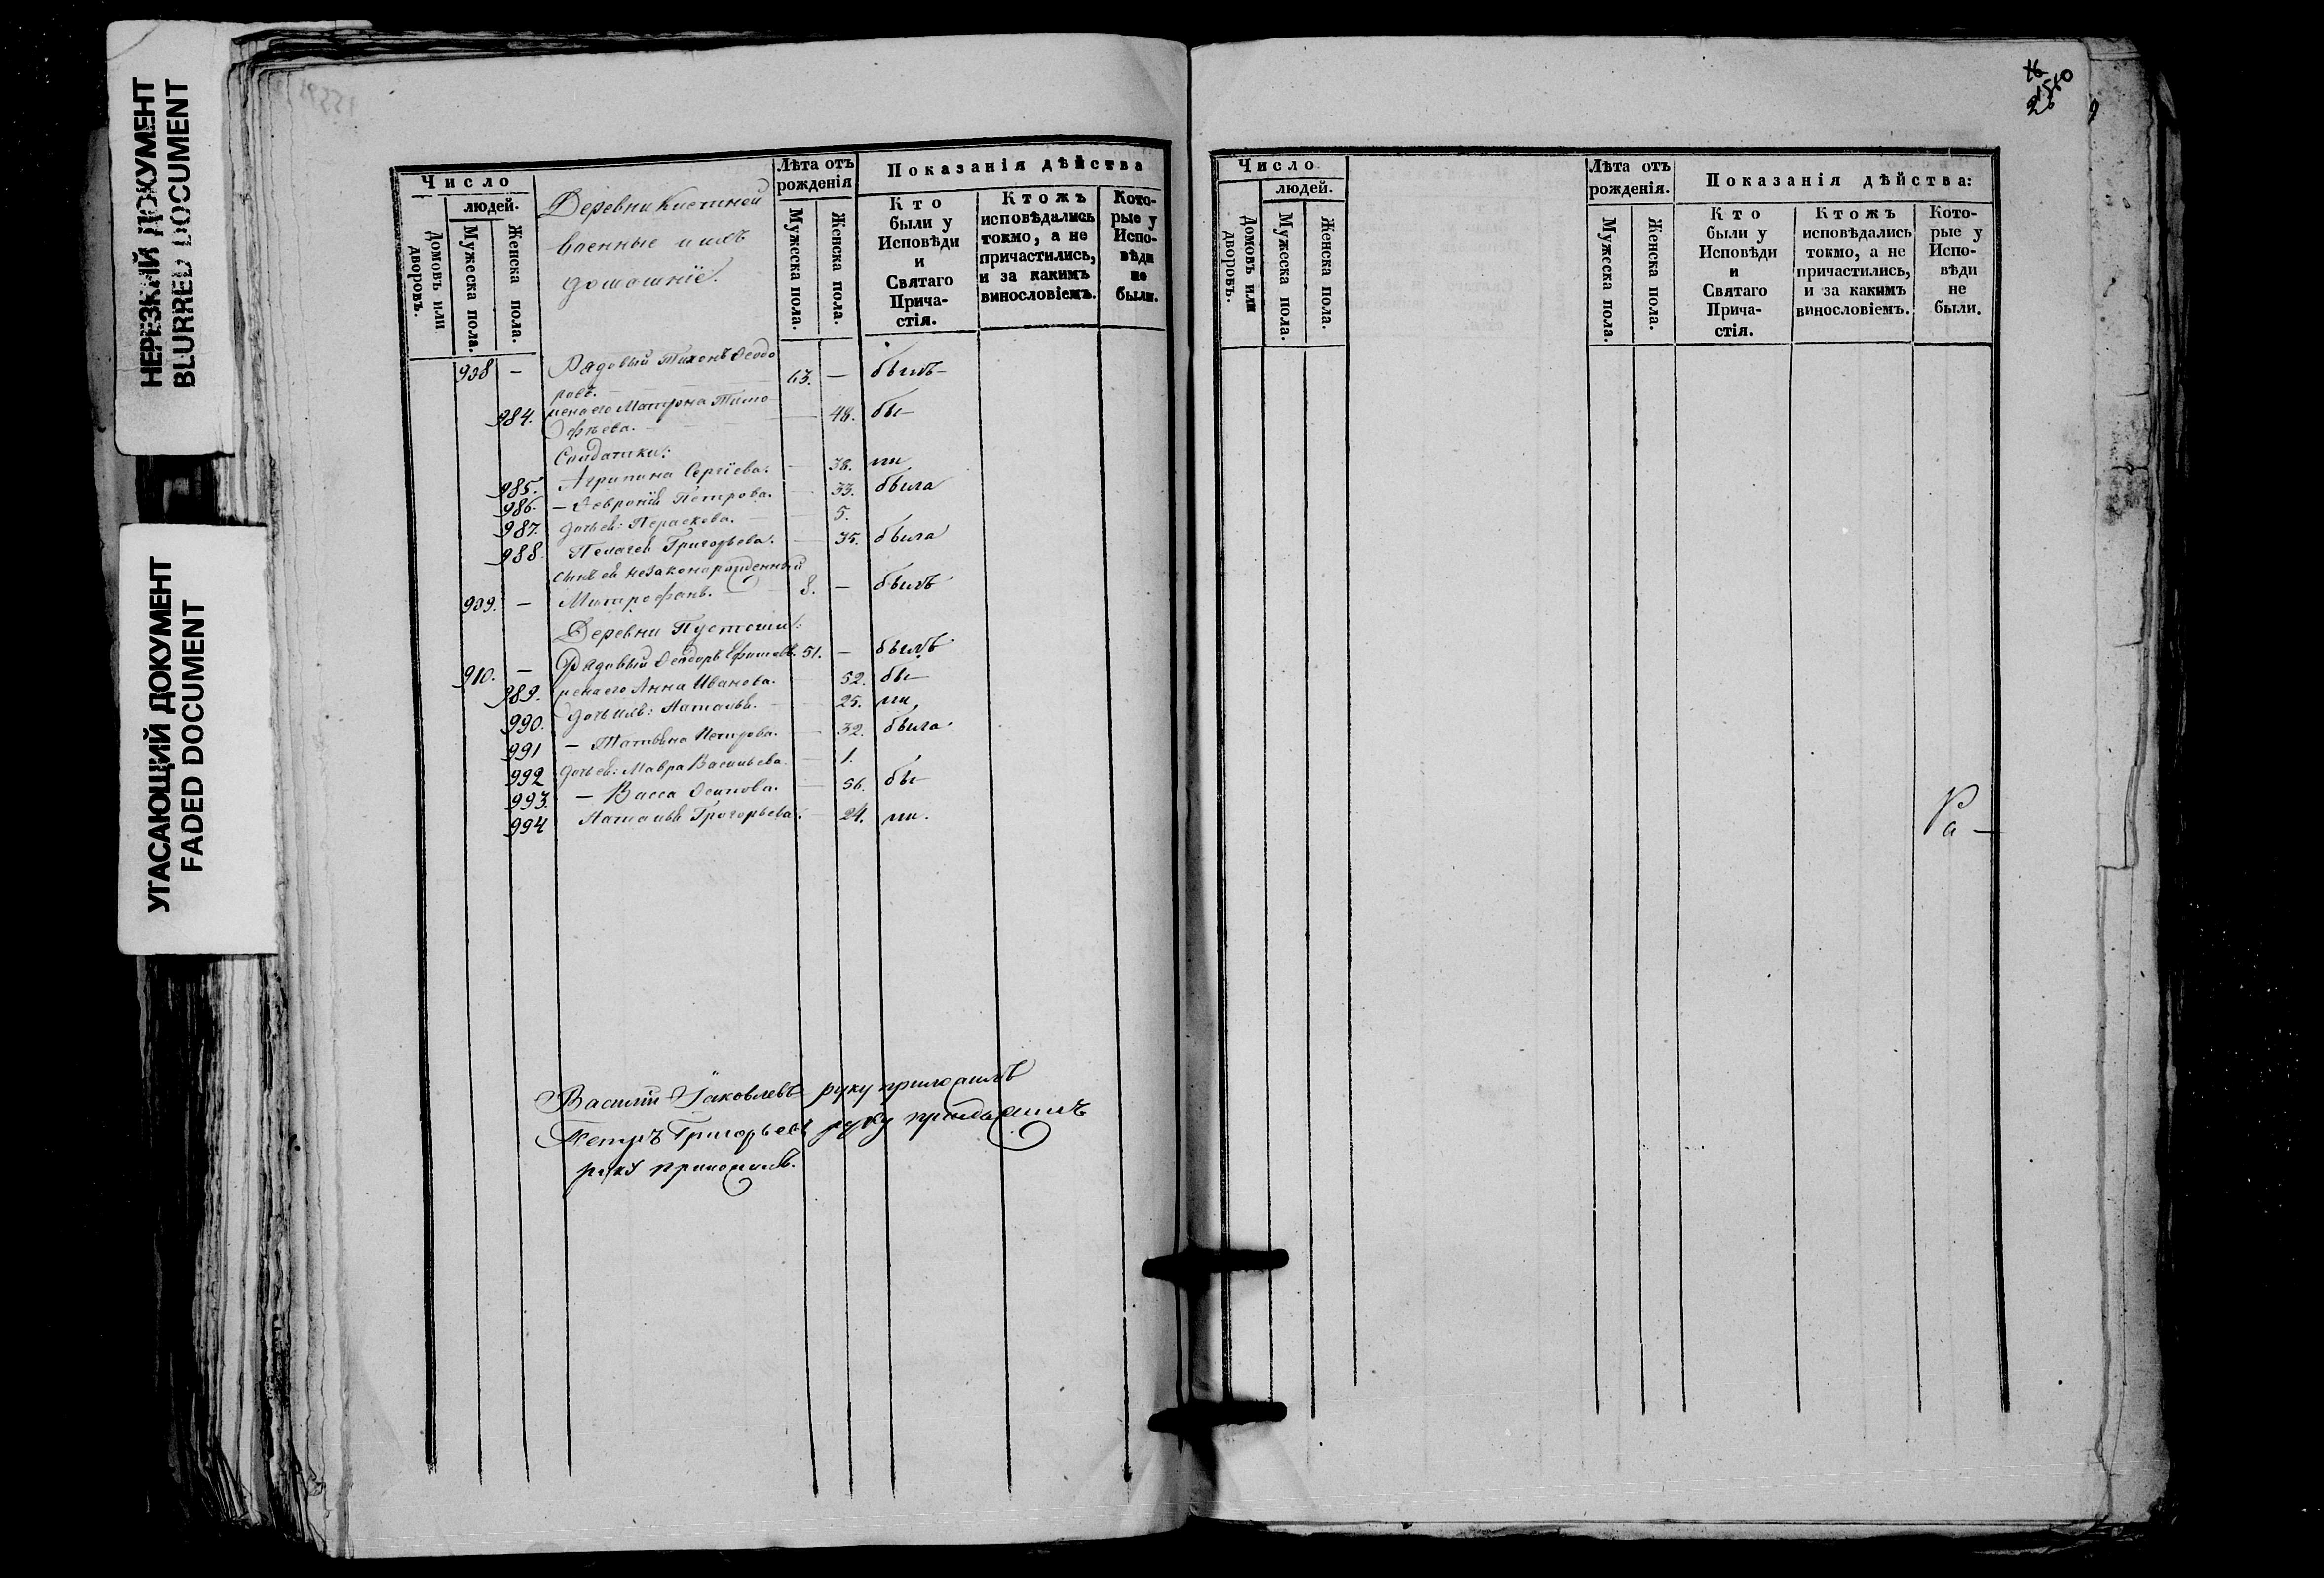 НЕРЕЗКИЙ ДОКУМЕНТ
BLURRED DOCUMENT
УГАСАЮЩИЙ ДОКУМЕНТ
FADED DOCUMENT
Число
людей.
Домовъ или дворовъ.
Мужеска пола.
Женска пола.
Деревни
военные и ихъ
домошніе.
Лѣта отъ рожденія
Мужеска пола.
Женска пола.
Показанія дѣйства
Кто были у Исповѣди и Святаго Прича-стія.
Ктожъ исповѣдались токмо, а не причастились, и за какимъ винословіемъ.
Кото-рые у Испо-вѣди не были.
908 — Рядовый Тихонъ Ѳеодо 63. — былъ
ровъ.
984. жена его Матрона Тимо — 48. бы—
фѣева.
Солдатки:
985. Агрипина Сергіева. — 38. ли
986. — Ѳевронія Петрова. — 33. была
987. дочь ея: Параскева. — 5.
988. Пелагея Григорьева. — 35. была
сынъ ея незаконорожденный
909. — Митрофанъ. 8. — былъ
Деревни
910. — Рядовый Ѳеодоръ Ефимовъ. 51. — былъ
989. жена его Анна Иванова. 52. бы—
990. дочь ихъ: Наталья. 25. ли,
991 — Татьяна Петрова. 32. была
992 дочь ея: Мавра Васильева 1.
993. — Васса Осипова. 56. бы—
994 Наталья Григорьева. 24. ли.
Василій Іаковлевъ руку приложилъ
Петръ Григорьевъ руку приложилъ
руку приложилъ.
560
26
Число
людей.
Домовъ или дворовъ.
Мужеска пола.
Женска пола.
Лѣта отъ рожденія.
Мужеска пола.
Женска пола.
Показанія дѣйства:
Кто были у Исповѣди и Святаго Прича-стія.
Ктожъ исповѣдались токмо, а не причастились, и за какимъ винословіемъ.
Кото-рые у Испо-вѣди не были.
Ра—